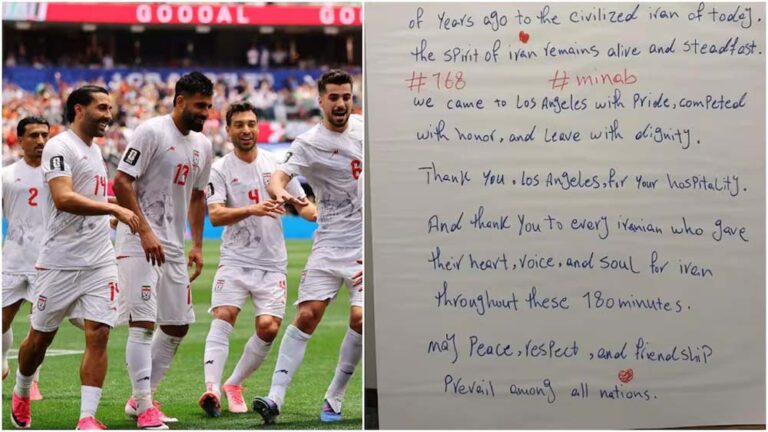 GOOOAL
GOAL
2
14
13
4
6
of years ago to the civilized iran of today.
the spirit of iran remains alive and steadfast.
#168 #minab
we came to Los Angeles with Pride, competed
with honor, and Leave with dignity.
Thank You, Los Angeles, for Your hospitality.
And thank You to every iranian who gave
their heart, voice, and soul for iran
throughout these 180 minutes.
may Peace, respect, and friendship
Prevail among all nations.